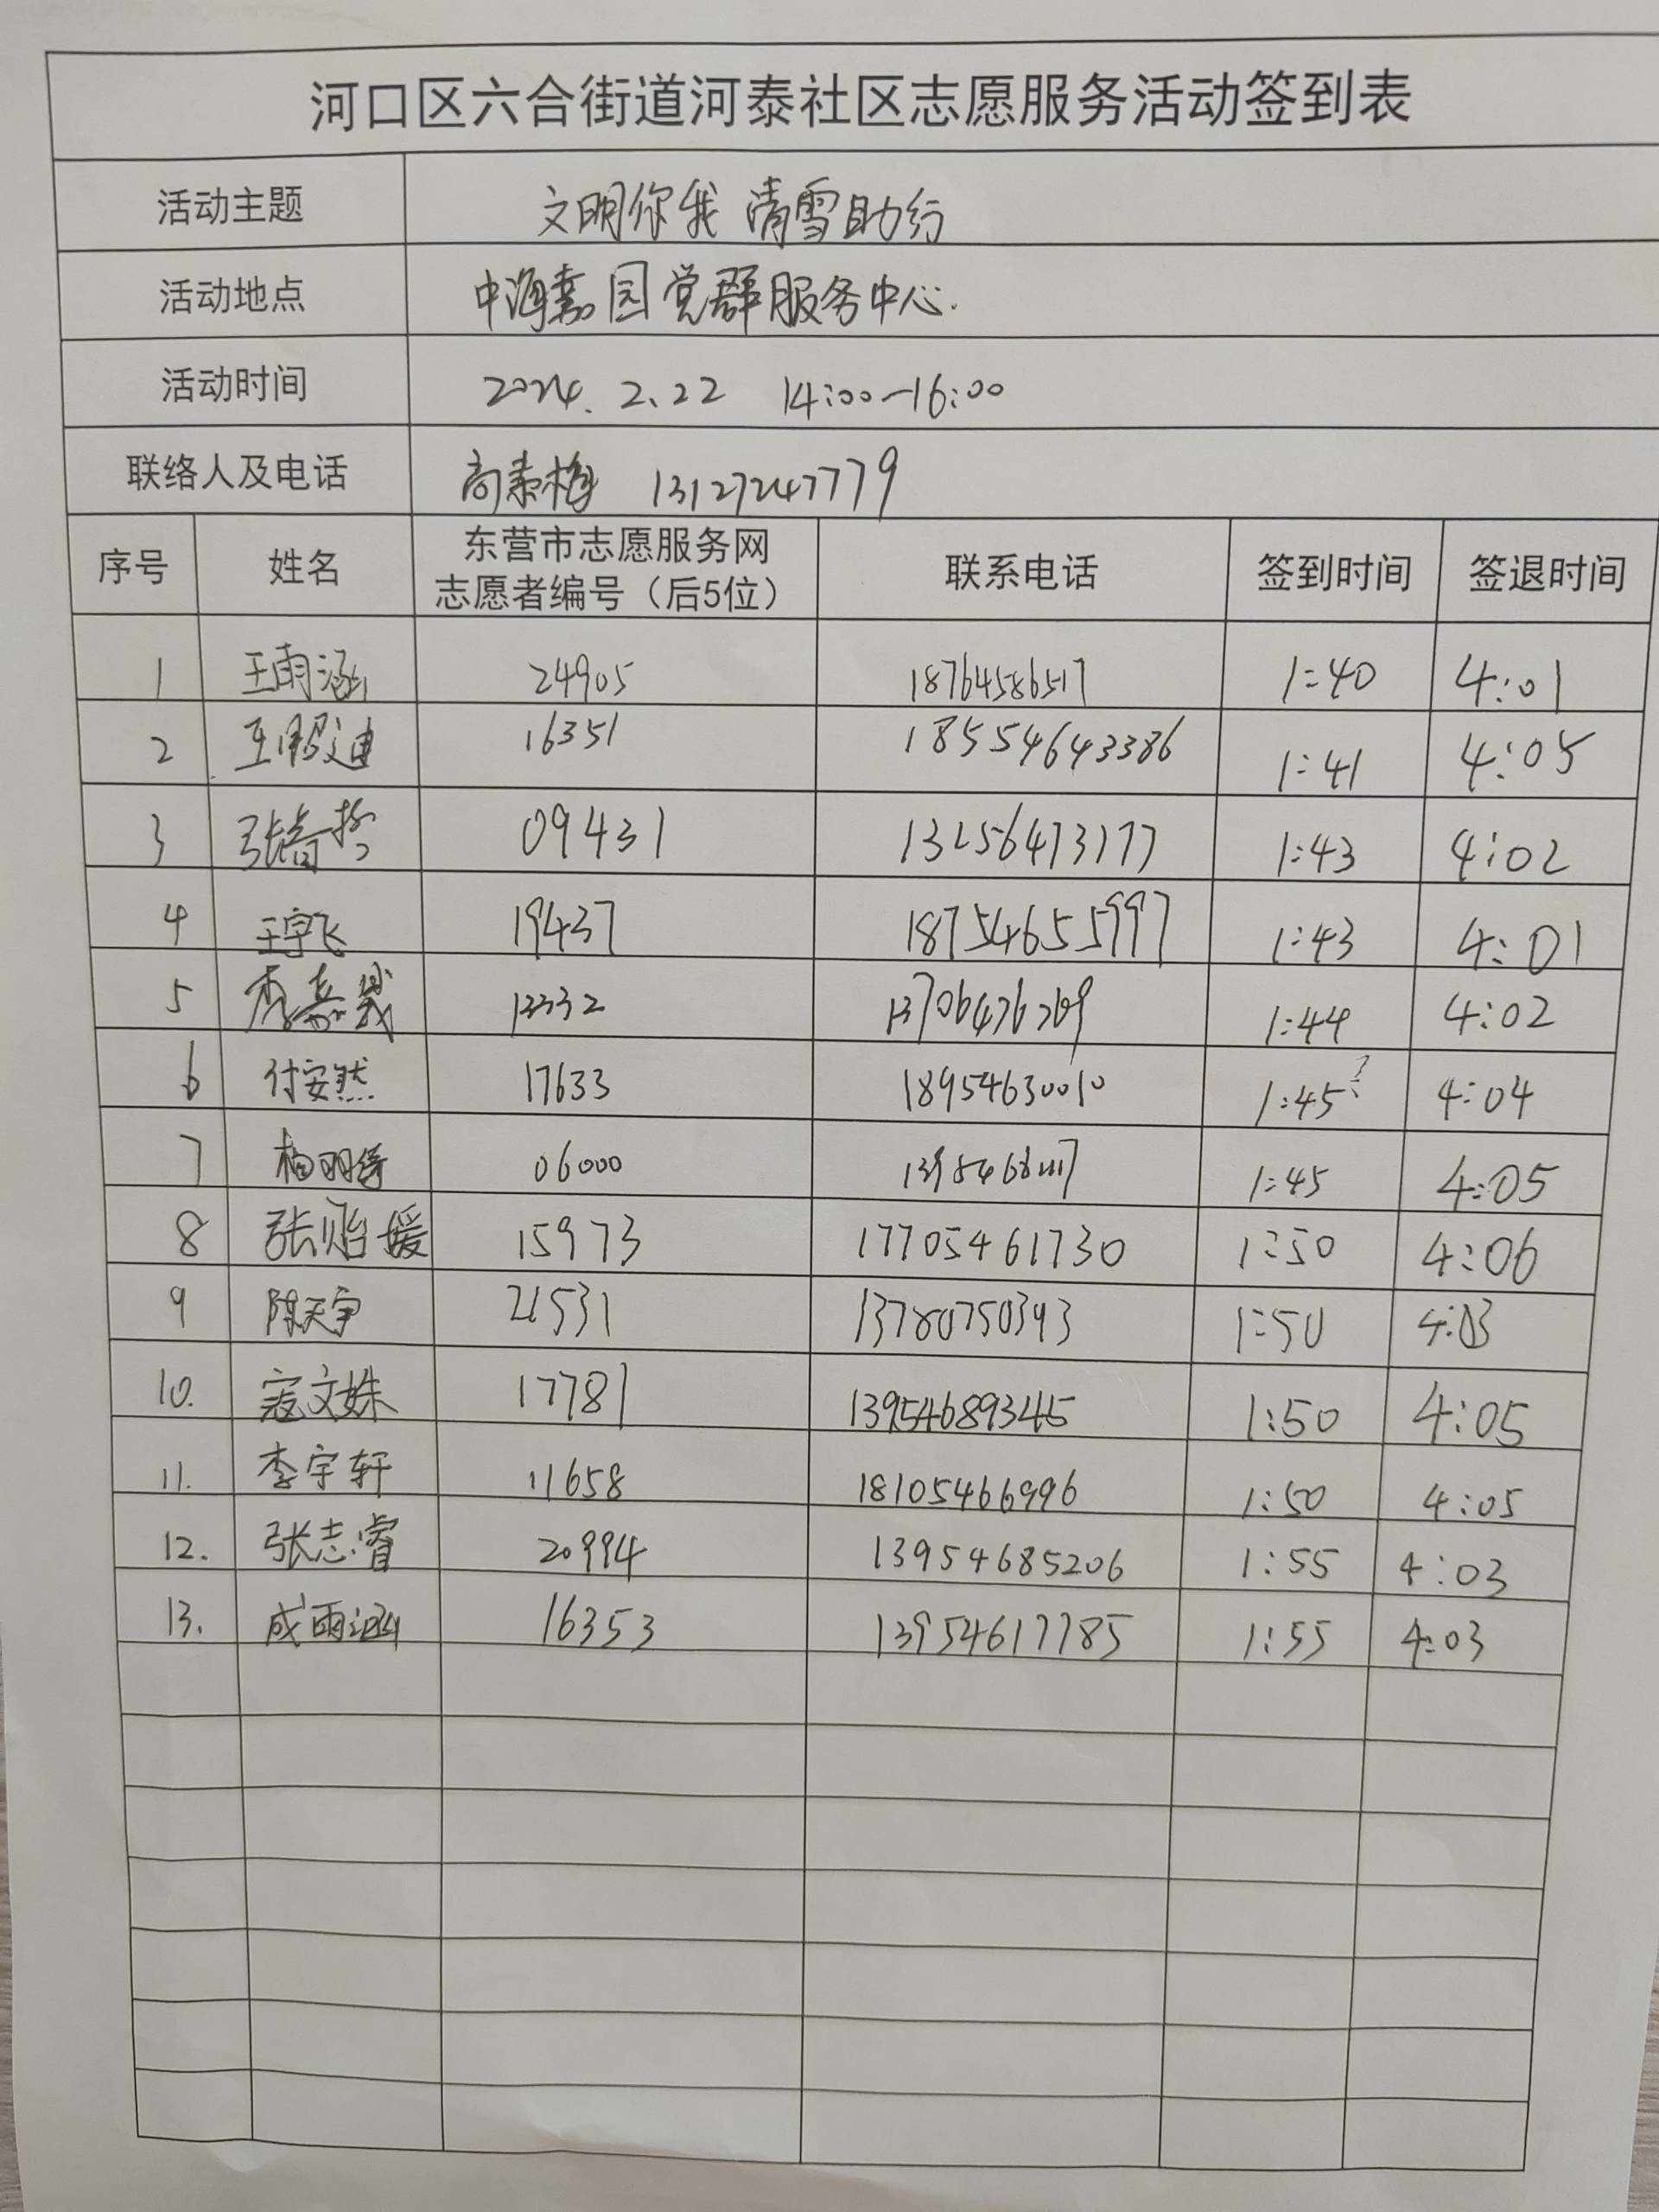 河口区六合街道河泰社区志愿服务活动签到表
活动主题 文明你我 清雪助行
活动地点 中海嘉园党群服务中心.
活动时间 2024.2.22 14:00-16:00
联络人及电话 13127247779
序号 姓名 东营市志愿服务网 志愿者编号（后5位） 联系电话 签到时间 签退时间
1 王雨涵 24905 18764586517 1:40 4:01
2 16351 18554643386 1:41 4:05
3 09431 13256473177 1:43 4:02
4 王宇飞 19437 18754655997 1:43 4:01
5 13332 13706476769 1:44 4:02
6 付安然 17633 18954630010 1:45 4:04
7 06000 1:45 4:05
8 张贻媛 15973 17705461730 1:50 4:06
9 陈天宇 21531 13780750393 1:50 4:03
10. 寇文姝 17781 13954689345 1:50 4:05
11. 李宇轩 11658 18105466996 1:50 4:05
12. 张志睿 20994 13954685206 1:55 4:03
13. 成雨涵 16353 13954617785 1:55 4:03